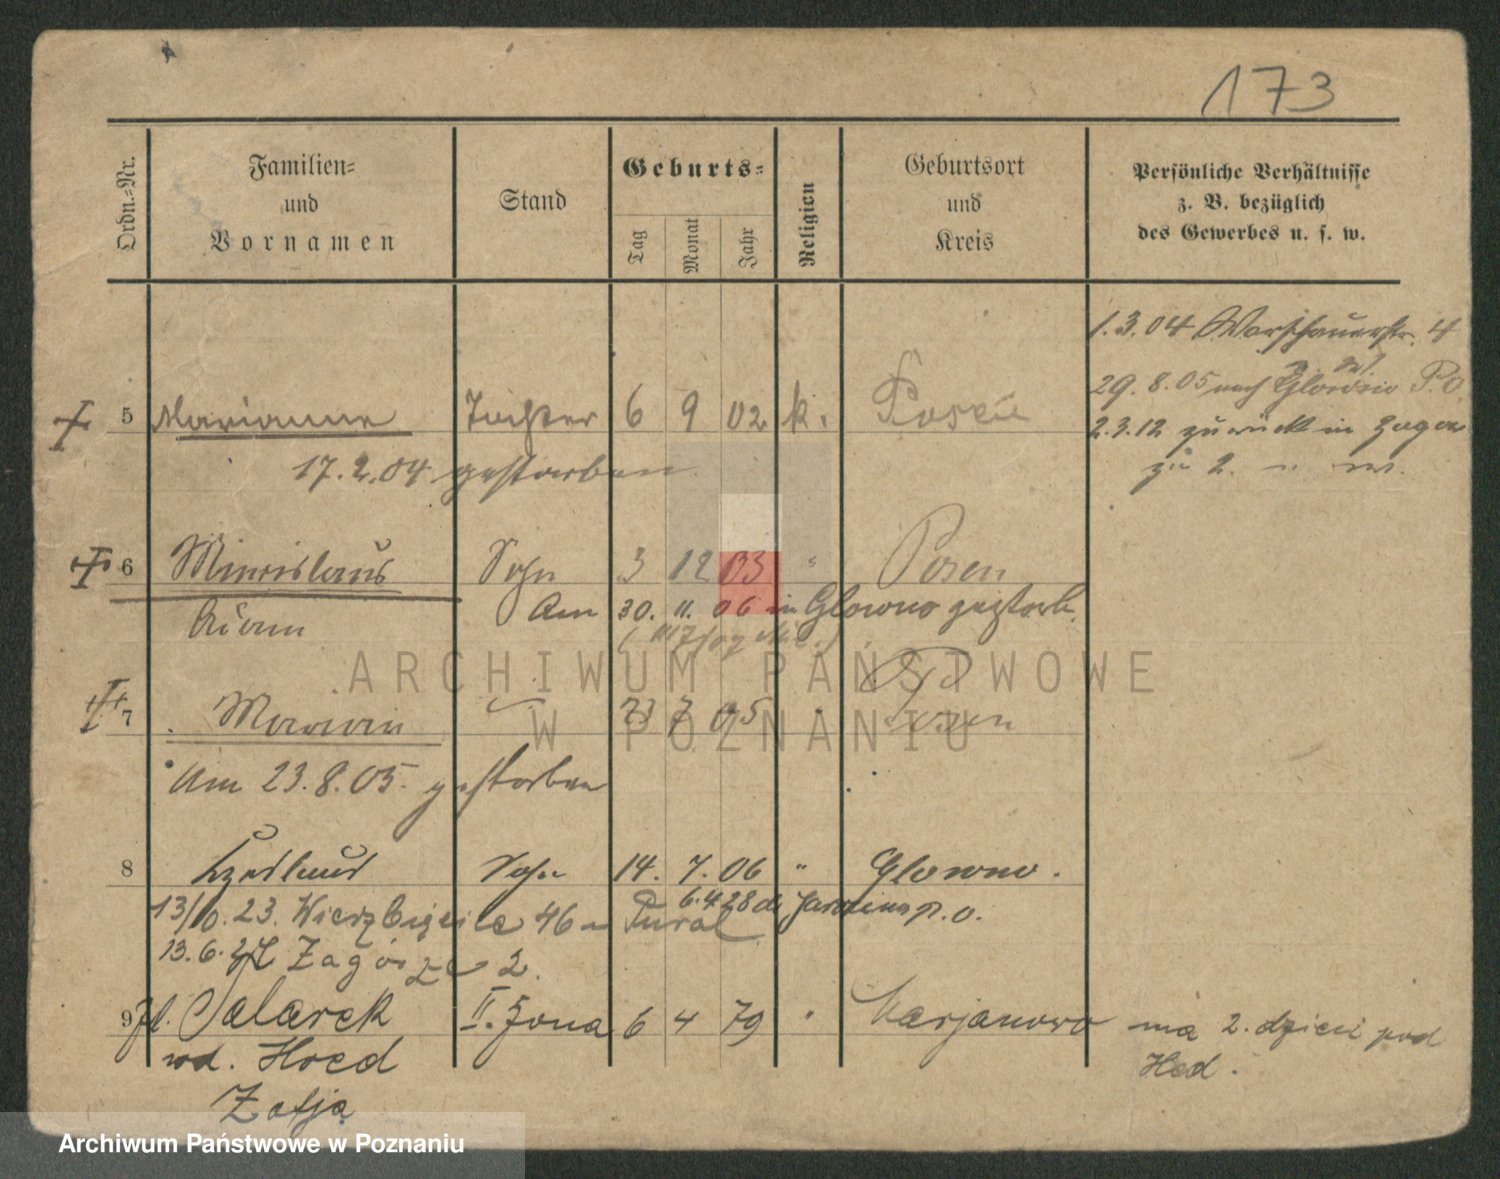 173
Ordn.-Nr. Familien- und Vornamen Stand Geburts- Tag Monat Jahr Religion Geburtsort und Kreis Persönliche Verhältnisse z. B. bezüglich des Gewerbes u. s. w.
1.3.04 Warschauerstr. 4
29.8.05 nach Glowno P.O.
5 Marianna Tochter 6 9 02 k. Posen
2.3.12 zurück in
17.2.04 gestorben
zu 2.
6 Sohn 3 12 03 " Posen
Am 30. 11. 06 in Glowno gestorb.
7 Marian 23 7 05 " Posen
Am 23.8.05. gestorben
8 Sohn 14. 7. 06 " Glowno.
13/10.23. Wierzbięcice 46
6.4.28 p.o.
13.6. Zagórze 2.
9 II. żona 6 4 79 " Marjanowo ma 2. dzieci pod
wd. Hoed
Hed.
Zofja
ARCHIWUM PAŃSTWOWE
W POZNANIU
Archiwum Państwowe w Poznaniu